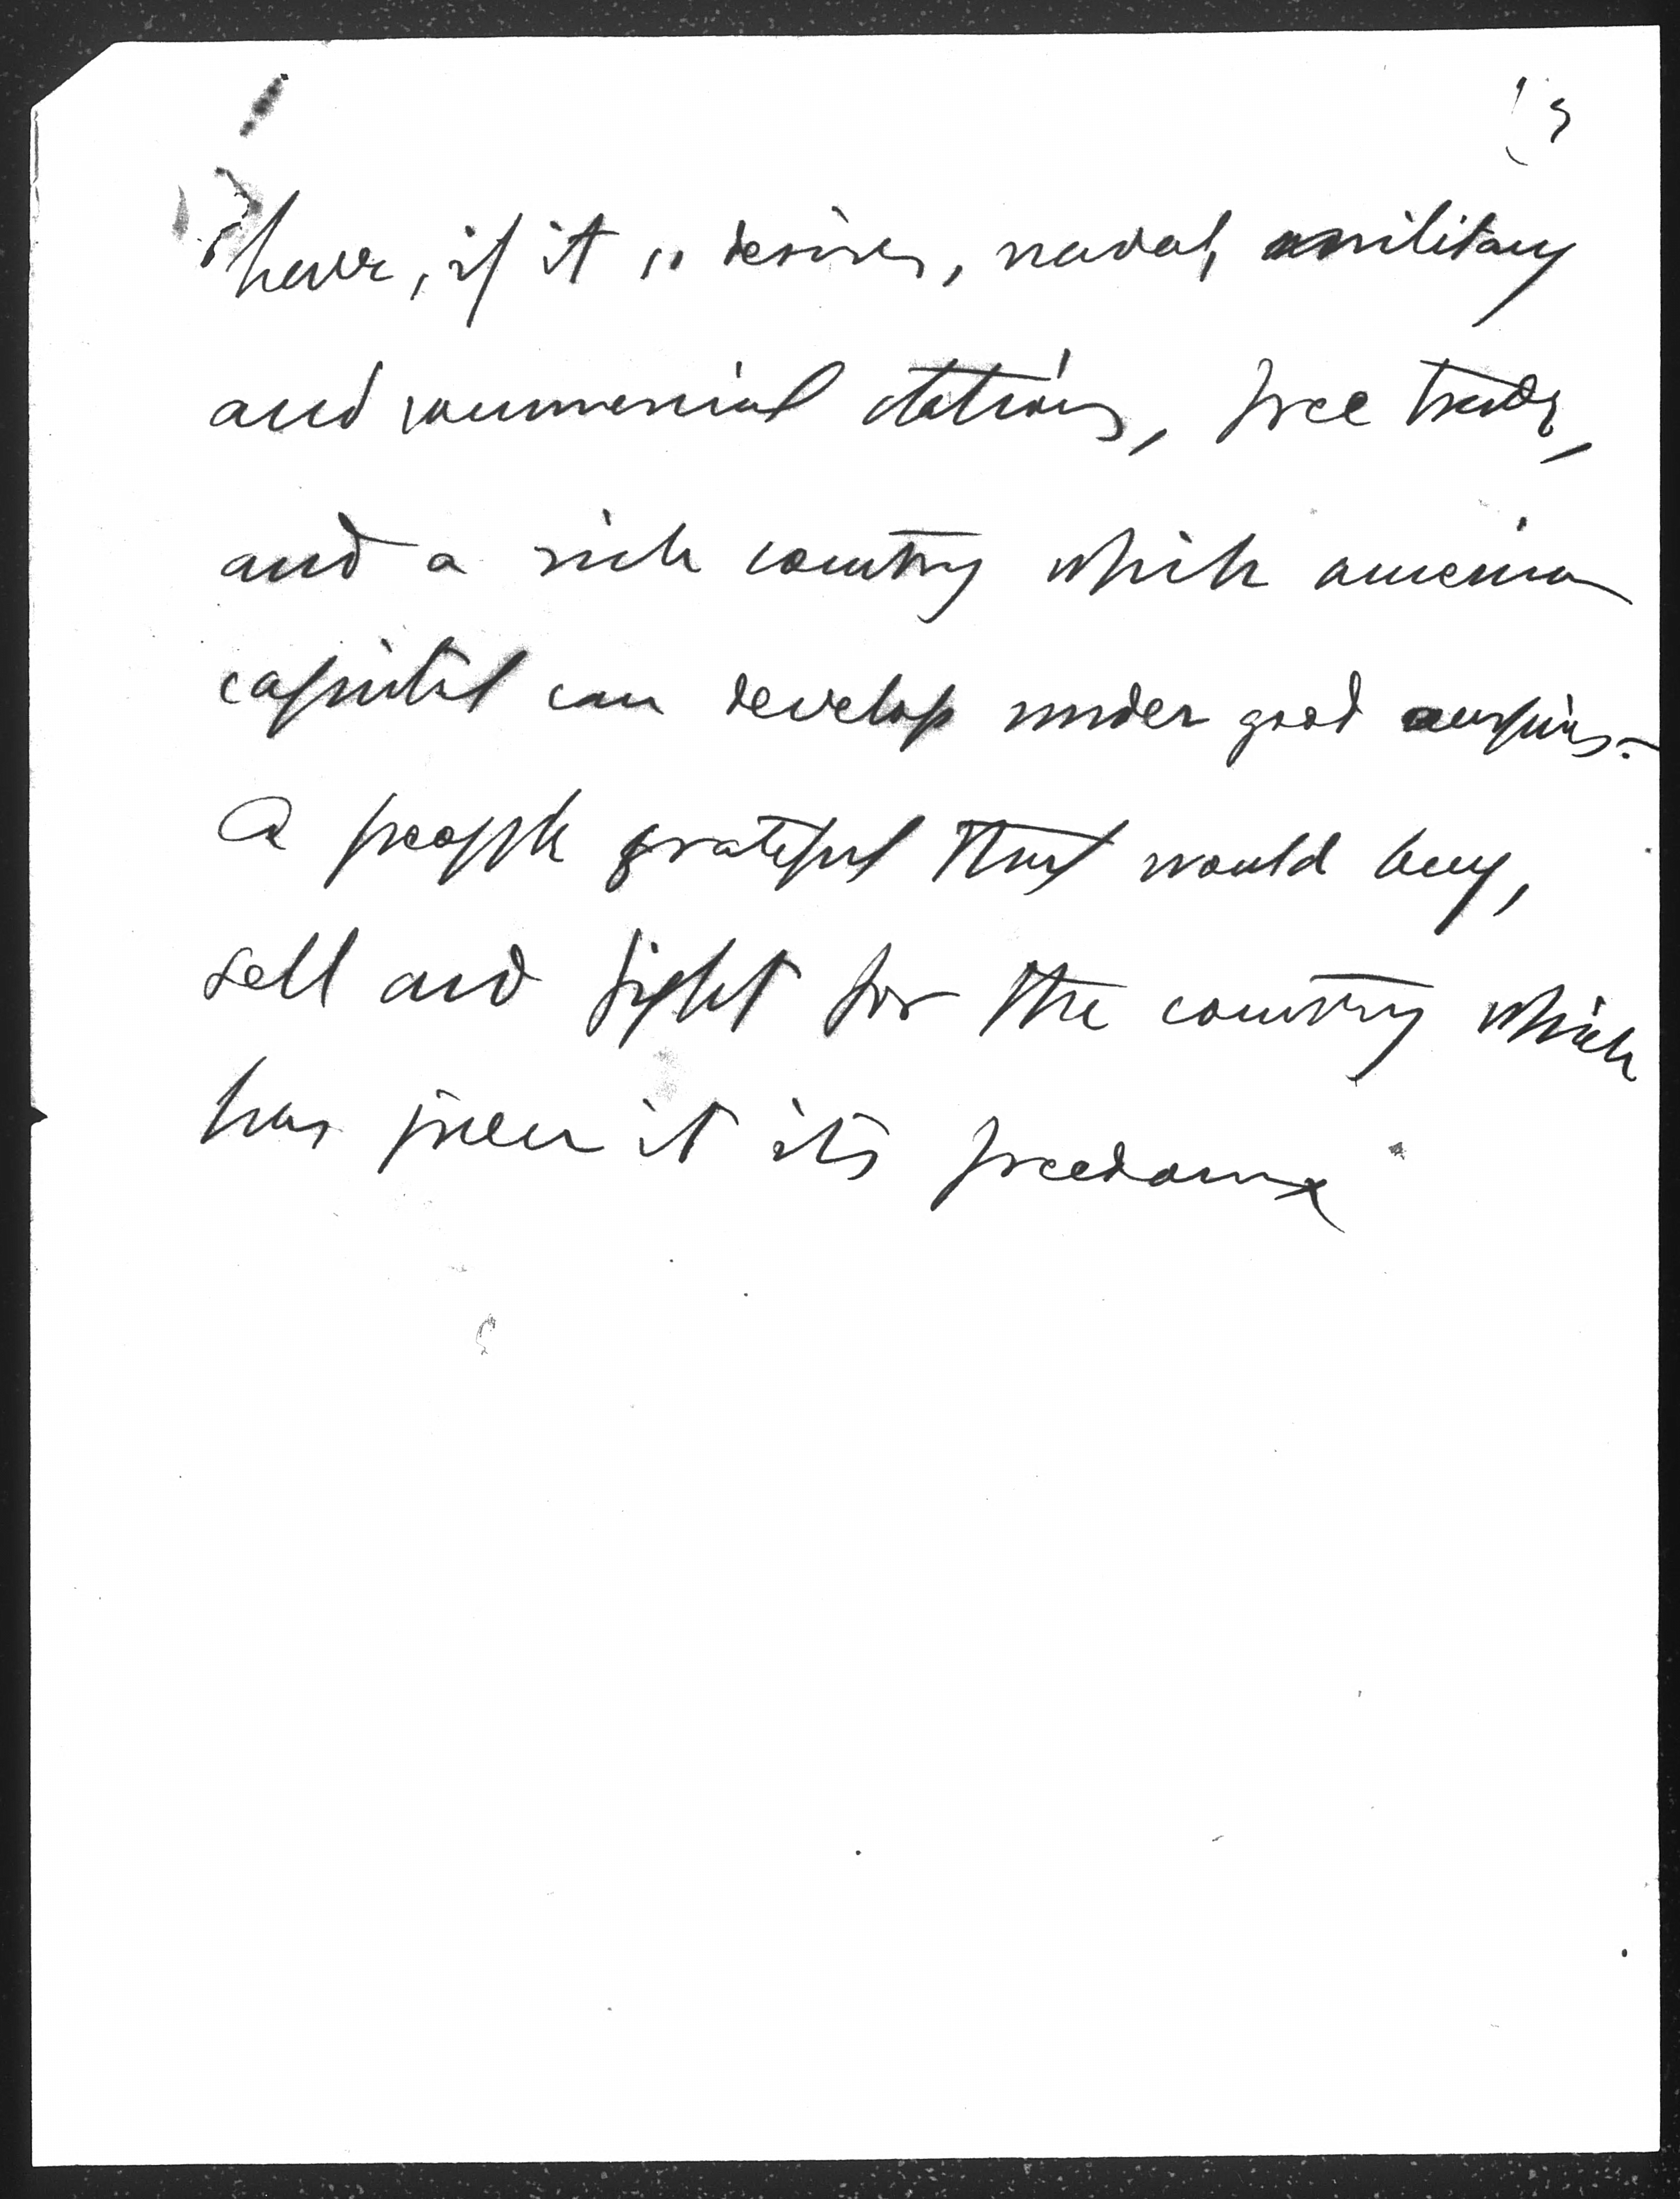 have, if it so desires, naval, military
and commercial stations, free trade,
and a rich country which america
capital can develop under good auspices.-
A people grateful that would buy,
sell and fight for the country which
has given it its freedom